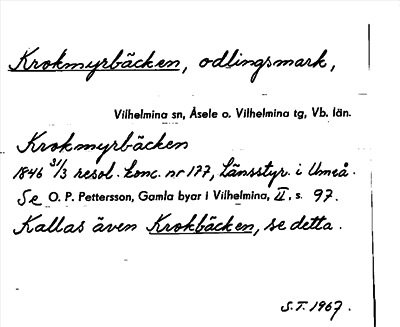 Krokmyrbäcken, odlingsmark,
Vilhelmina sn, Åsele o. Vilhelmina tg, Vb. län.
Krokmyrbäcken
1846 31/3 resol. konc. nr 177, Länsstyr. i Umeå.
Se O. P. Pettersson, Gamla byar i Vilhelmina, II, s. 97.
Kallas även Krokbäcken, se detta.
S.T. 1967.